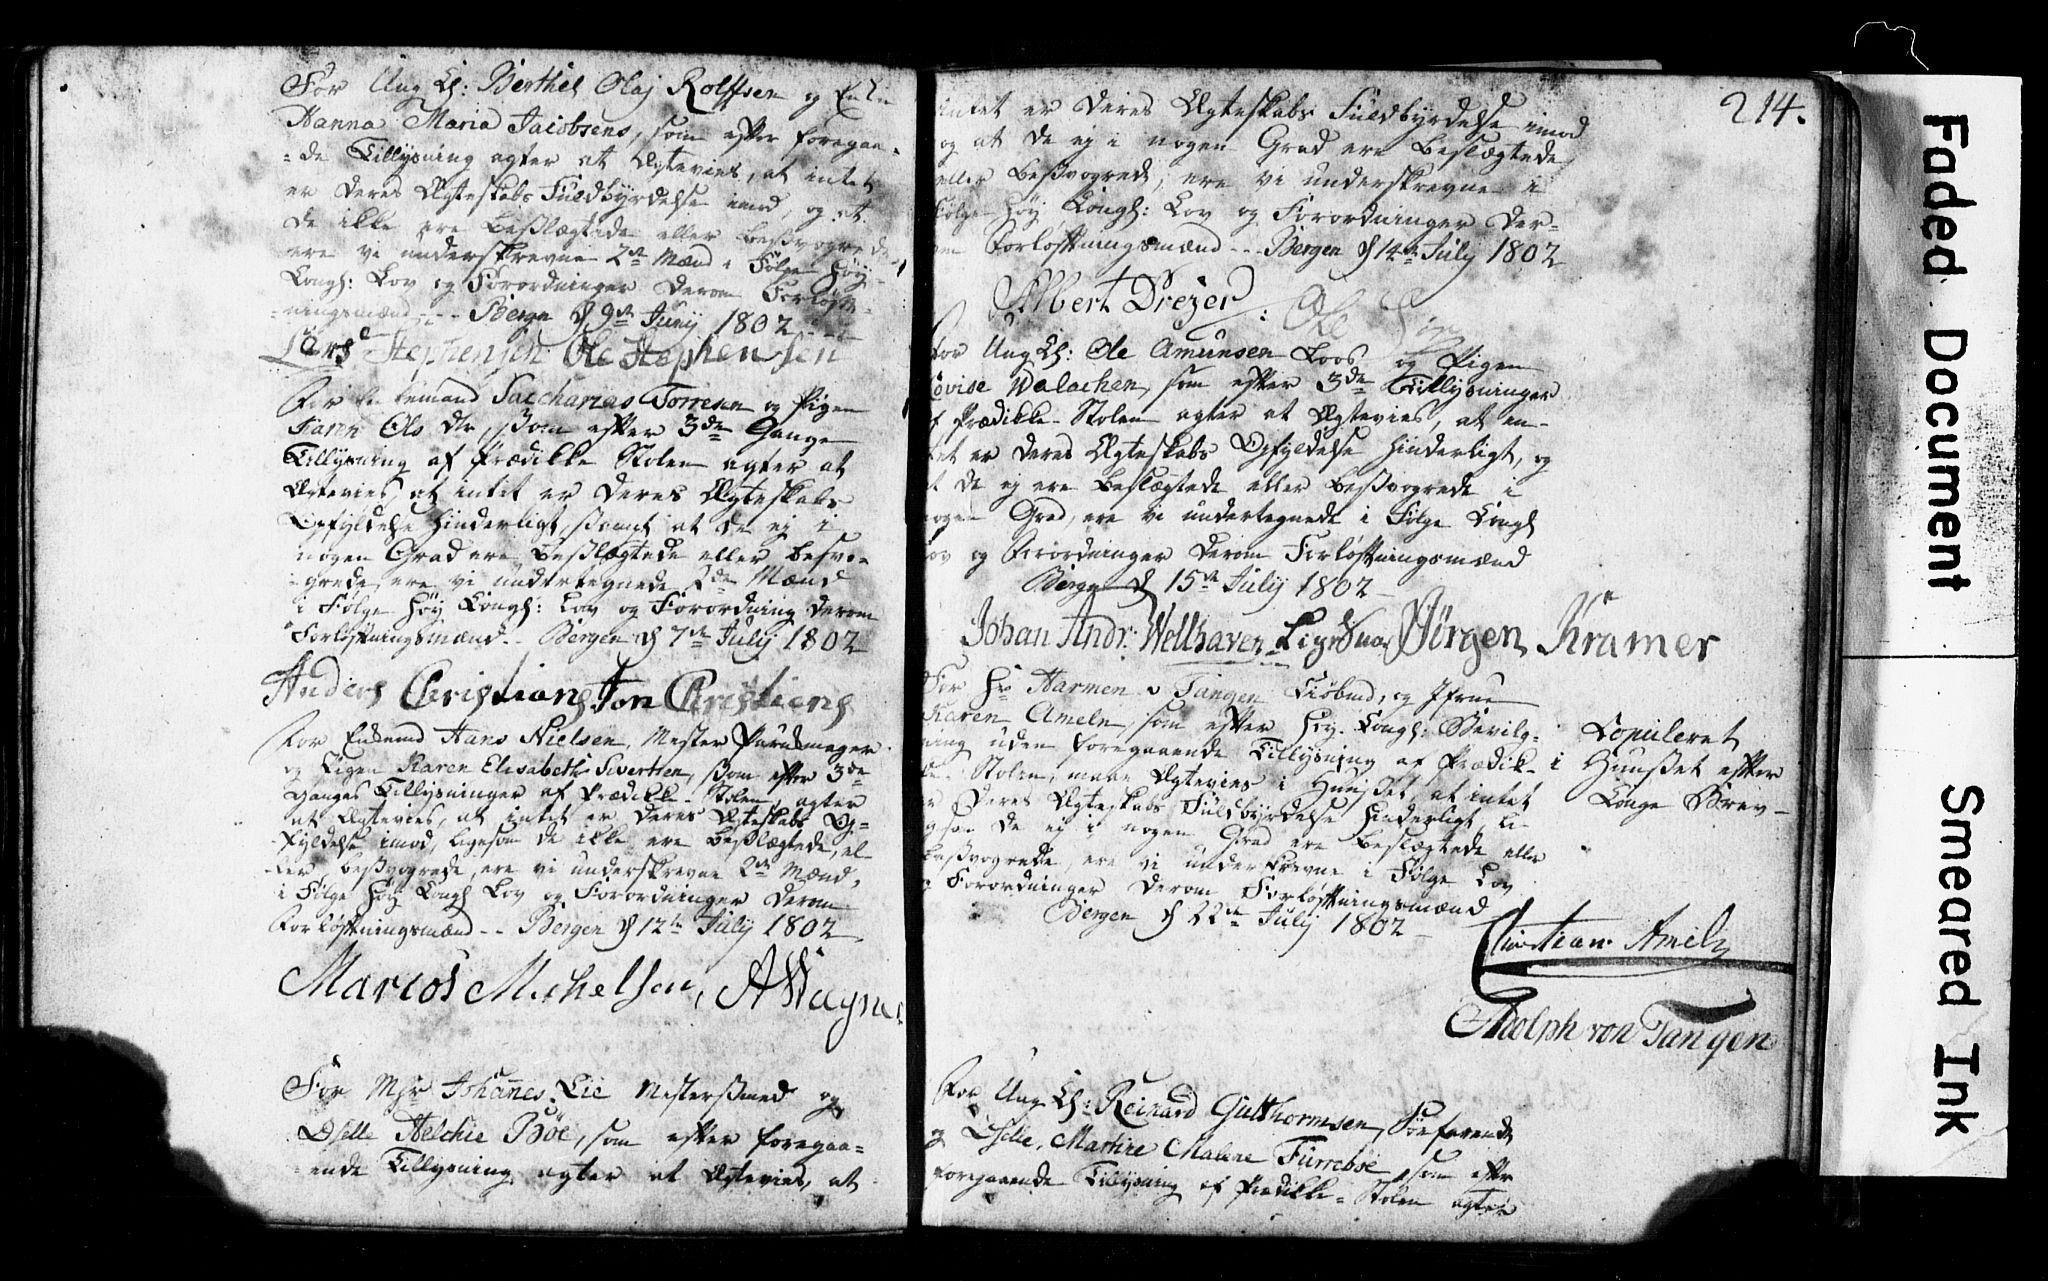 For Ung K: Berthel Olaj Rolffsen og Enke
Hanna Maria Jacobsens, som efter foregaa-
-de Tillysning agter at Ægtevies, at intet
er Deres Ægteskabs Fuldbyrdelse imod, og at
de ikke ere Besslægtede eller Bessvogrede,
ere vi underskrevne 2de Mænd i Følge Høy
Kongl: Lov og Forordninger Derom Forløft-
-ningsmænd --- Bergen d 9de Juny 1802 ---
Lars Stephensen Ole Stephensen
For Enkemand Sacharias Torresen og Pigen
Karen Ols dr, som efter 3de Gange
Tillysning af Prædikke Stolen agter at
Ægtevies, at intet er Deres Ægteskabs
Opfyldelse Hinderligt, samt at de ej i
nogen Grad ere Besslægtede eller Besvo-
-grede, ere vi undertegnede 2de Mænd
i Følge Høy Kongl: Lov og Forordning Derom
Forløftningsmænd -- Bergen d 7de July 1802
Anders Christians Jon Christiens
For Enkemd Hans Nielsen, Mester
og Pigen Karen Elisabeth Sivertsen, som efter 3de
Ganges Tillysninger af Prædikke-Stolen, agter
at Ægtevies, at intet er Deres Ægteskabs Op-
-fyldelse imod, ligesom de ikke ere Besslægtede, el-
-ler Bessvogrede, ere vi underskrevne 2de Mænd,
i Følge Høy Kongl Lov og Forordninger Derom
Forløftningsmænd -- Bergen d 12te July 1802
Marcos Michelsen, A Wagner
For Msr Johannes Lie Mestersmed og
Dslle Aelchie Böe, som efter foregaa-
ende Tillysning agter at Ægtevies, at
214.
intet er Deres Ægteskabs Fuldbyrdelse imod
og at de ej i nogen Grad ere Beslægtede
eller Bessvogrede, ere vi underskrevne i
Følge Høy Kongl: Lov og Forordninger Der-
om Forløftningsmænd -- Bergen d 14de July 1802
Albert Drezer
For Ung K: Ole Amunsen Loos og Pigen
Lovise Walachen, som efter 3de Tillysninger
af Prædikke-Stolen agter at Ægtevies, at in-
tet er Deres Ægteskabs Opfyldelse Hinderligt, og
at de ej ere Beslægtede eller Bessvogrede i
nogen Grad, ere vi undertegnede i Følge Kongl
Lov og Forordninger Derom Forløftningsmænd
Bergen d 15de July 1802
Johan Andr: Wellhaven Jörgen Kramer
For Hr Harmen v Tangen Kiöbmd, og Jfrue
Karen Ameln, som efter Høy Kongl: Bevilg-
ning uden foregaaende Tillysning af Prædik-
ke-Stolen, maae Ægtevies i Huusset, at intet
er Deres Ægteskabs Fuldbyrdelse Hinderligt, li-
gesom de ej i nogen Grad ere Beslægtede eller
Bessvogrede, ere vi underskrevne i Følge Lov
og Forordninger Derom Forløftningsmænd
Bergen d 22de July 1802
Copuleret
i Huusset efter
Konge Brev-
Christian Ameln
Adolph von Tangen
For Ung K: Reinard Gutthormsen, Søefarende
og Dslle, Martine Malene Furreböe, som efter
foregaaende Tillysning af Prædikke-Stolen agter
Faded Document
Smeared Ink